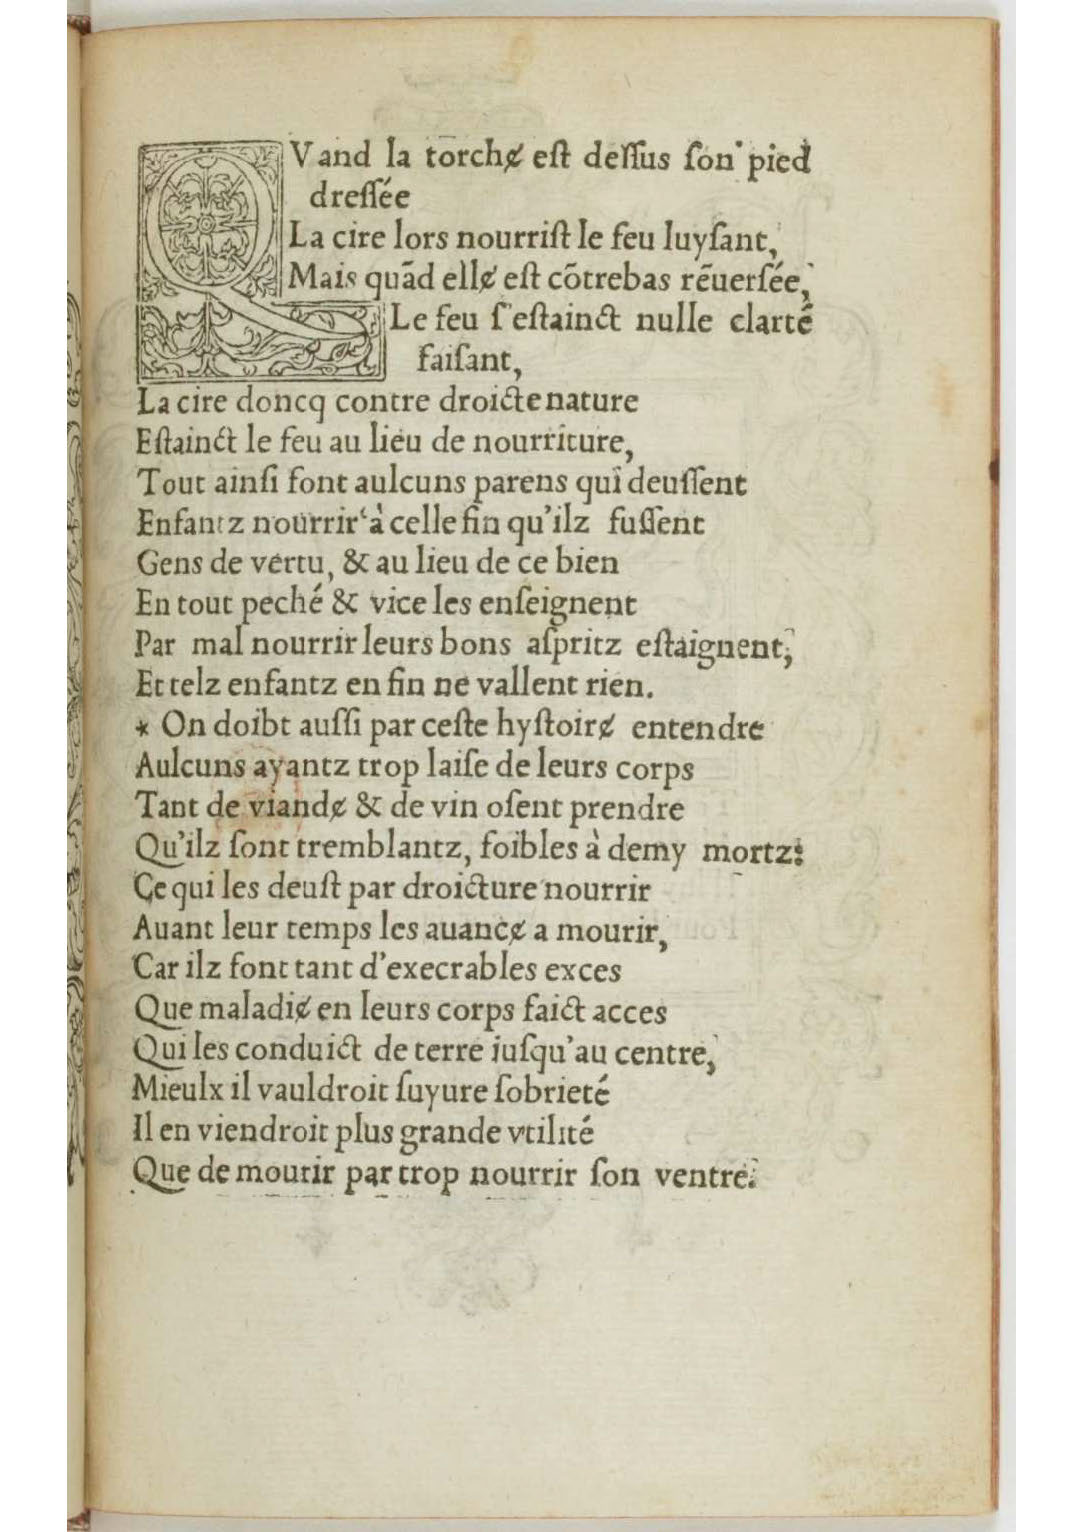 QVand la torchɇ eſt deſſus ſon pied
dreſſée
La cire lors nourriſt le feu luyſant,
Mais quãd ellɇ eſt cõtrebas rẽuerſée,
Le feu ſ'eſtainct nulle clarté
faiſant,
La cire doncq contre droicte nature
Eſtainct le feu au lieu de nourriture,
Tout ainſi font aulcuns parens qui deuſſent
Enfantz nourrir à celle fin qu'ilz fuſſent
Gens de vertu, & au lieu de ce bien
En tout peché & vice les enſeignent
Par mal nourrir leurs bons aſpritz eſtaignent,
Et telz enfantz en fin ne vallent rien.
* On doibt auſſi par ceſte hyſtoirɇ entendre
Aulcuns ayantz trop laiſe de leurs corps
Tant de viandɇ & de vin oſent prendre
Qu'ilz ſont tremblantz, foibles à demy mortz:
Ce qui les deuſt par droicture nourrir
Auant leur temps les auancɇ a mourir,
Car ilz font tant d'execrables exces
Que maladiɇ en leurs corps faict acces
Qui les conduict de terre iuſqu'au centre,
Mieulx il vauldroit ſuyure ſobrieté
Il en viendroit plus grande vtilité
Que de mourir par trop nourrir ſon ventre.